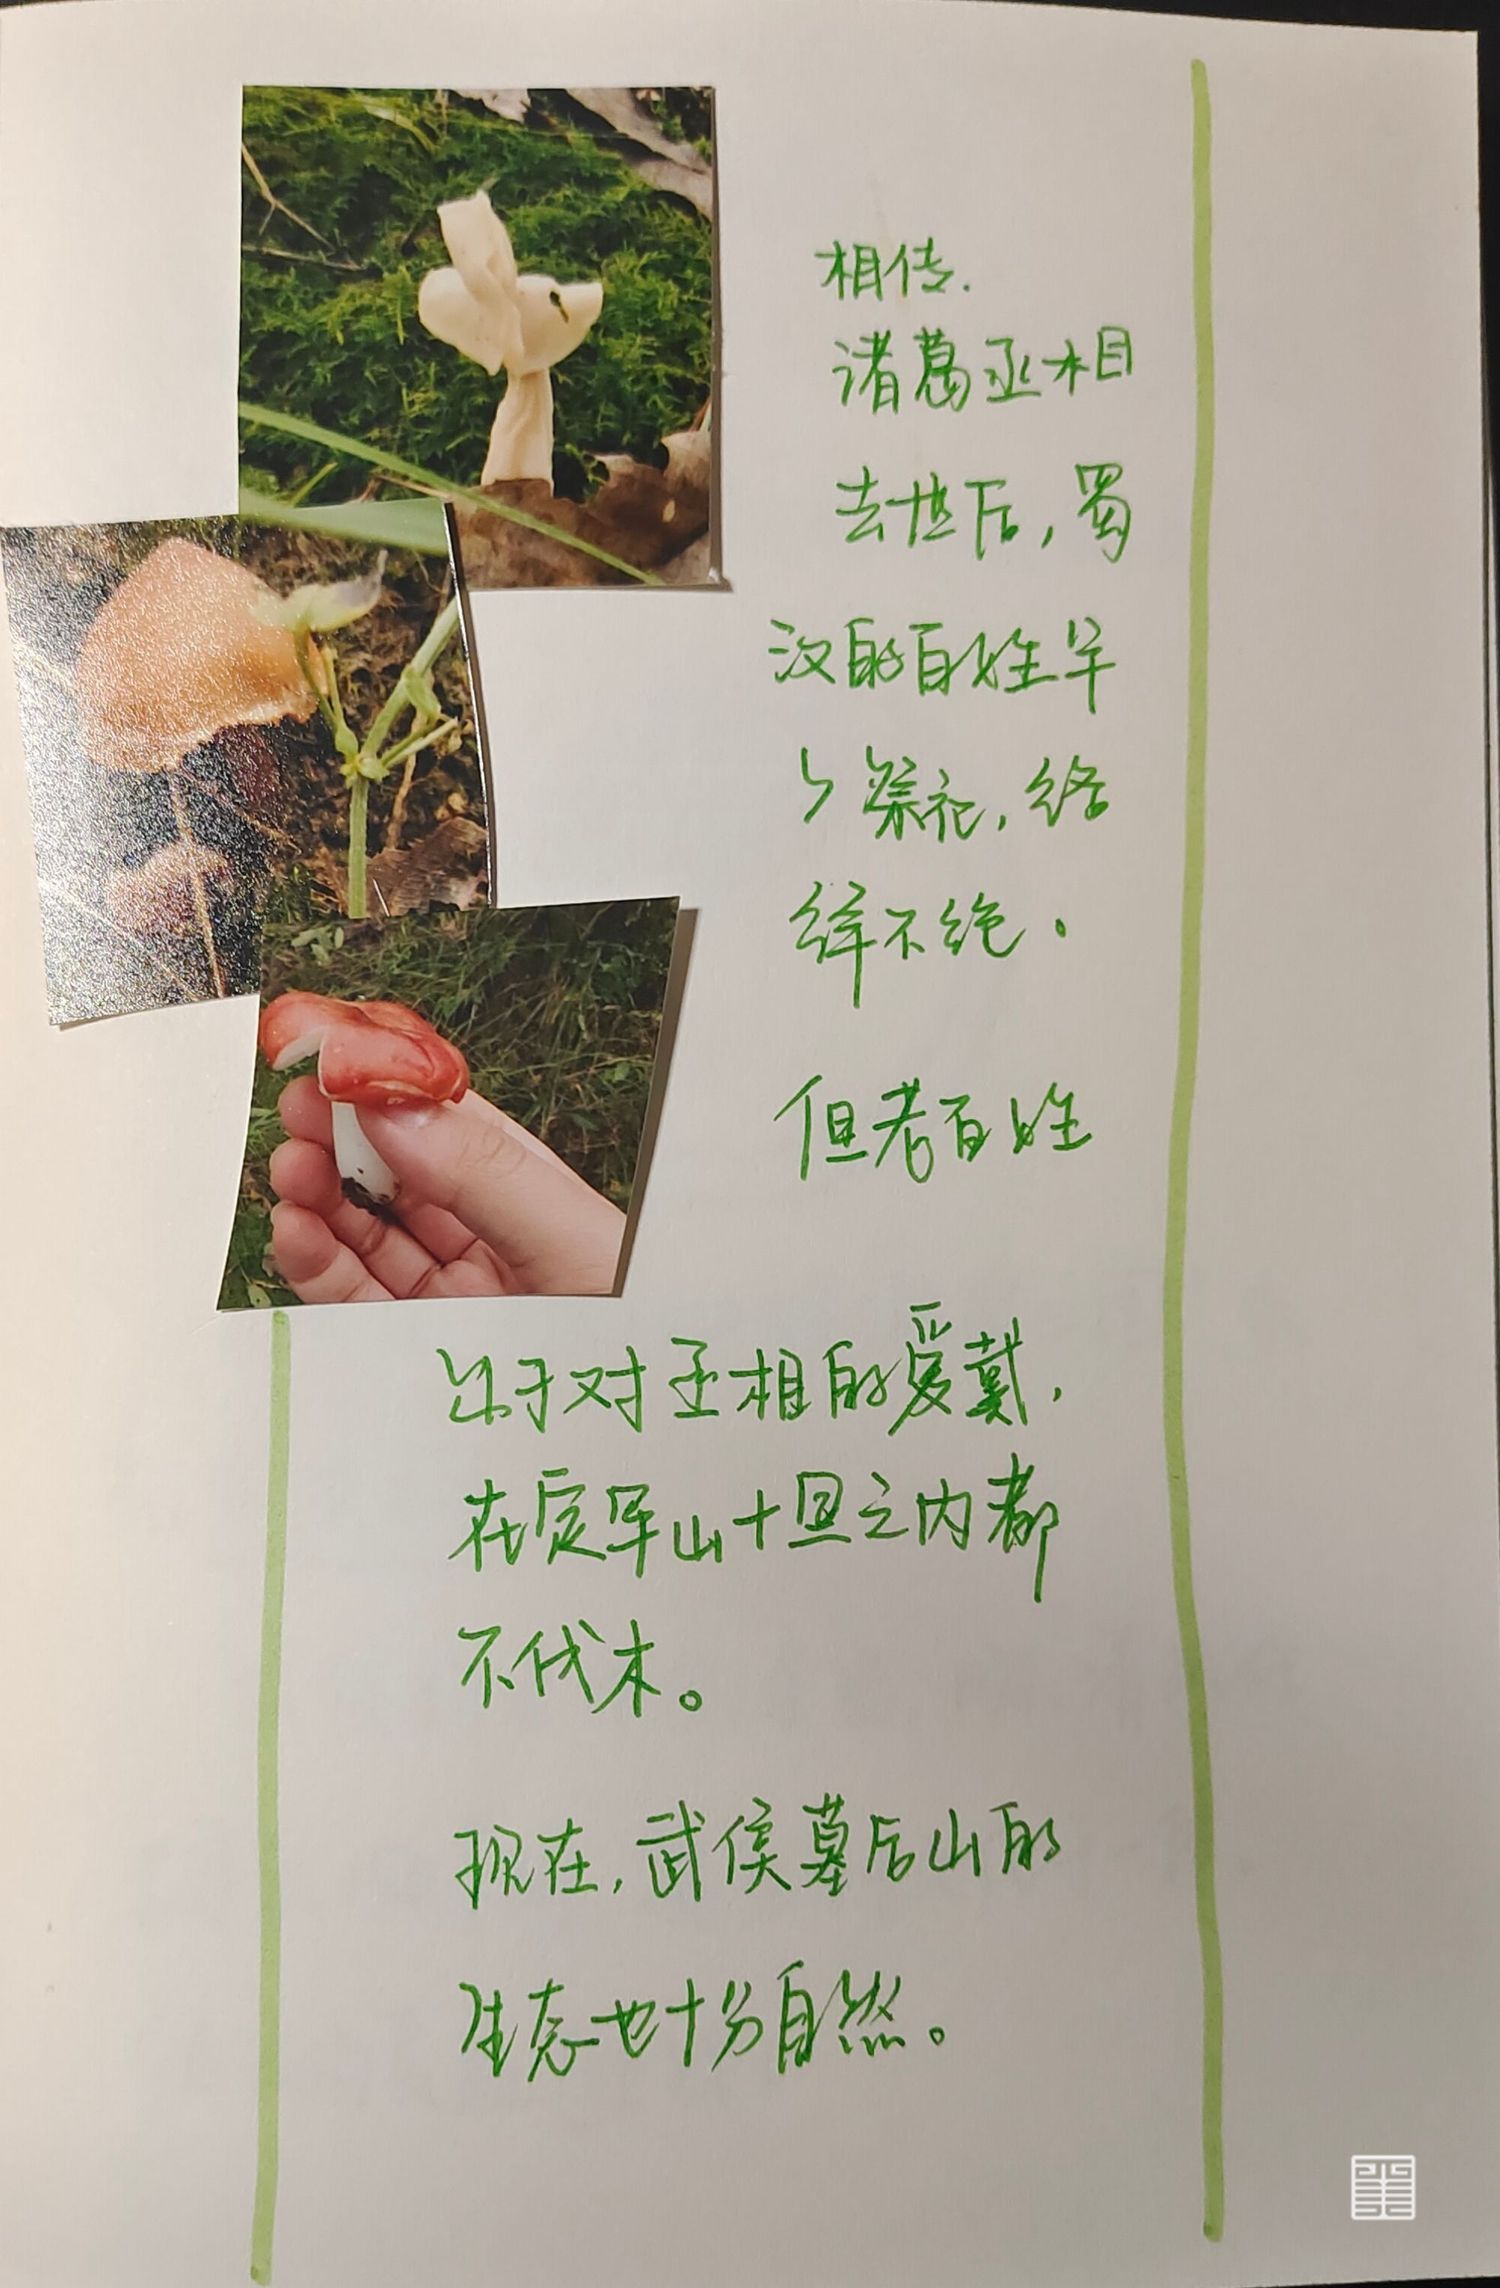 相传.
诸葛丞相
去世后，蜀
汉的百姓年
々祭祀，络
绎不绝。
但老百姓
出于对丞相的爱戴，
在定军山十里之内都
不伐木。
现在，武侯墓后山的
生态也十分自然。